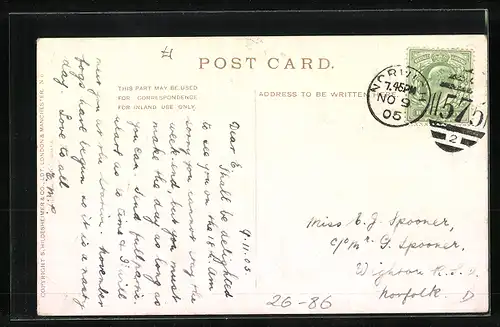 POST CARD.
THIS PART MAY BE USED
FOR CORRESPONDENCE
FOR INLAND USE ONLY.
ADDRESS TO BE WRITTEN
9.11.05.
Dear E. Shall be delighted
to see you on the 18th. Am
sorry you cannot stay the
week-end, but you must
make the day as long as
you can. Send full parti
as to time & I will
meet you at the November
fogs have begun so it is a nasty
day. Love to all
NORWICH
7.45PM
NO 9
05
575
2
Miss E. J. Spooner,
c/o Mr. G. Spooner,
Norfolk.
D
26-86
COPYRIGHT S. HILDESHEIMER & CO. LDT. LONDON & MANCHESTER.